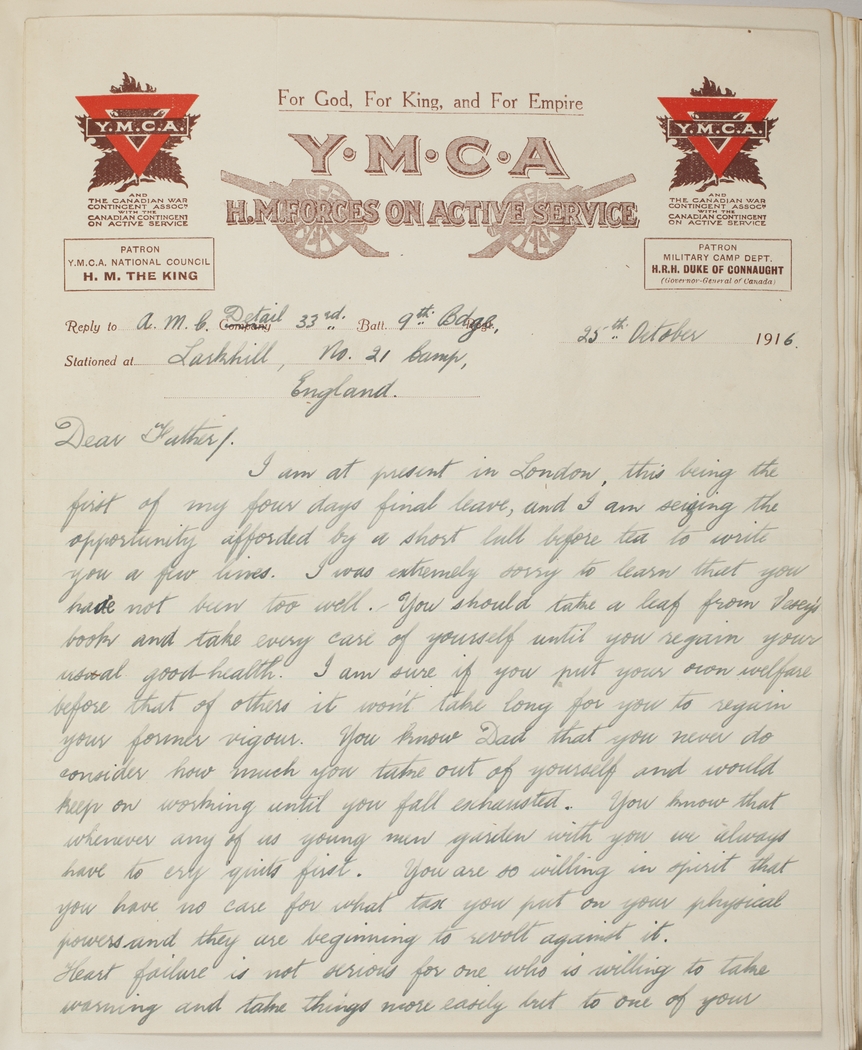 For God, For King, and For Empire
Y·M·C·A
H.M. FORCES ON ACTIVE SERVICE
Y.M.C.A.
AND
THE CANADIAN WAR
CONTINGENT ASSOCN
WITH THE
CANADIAN CONTINGENT
ON ACTIVE SERVICE
PATRON
Y.M.C.A. NATIONAL COUNCIL
H. M. THE KING
Y.M.C.A.
AND
THE CANADIAN WAR
CONTINGENT ASSOCN
WITH THE
CANADIAN CONTINGENT
ON ACTIVE SERVICE
PATRON
MILITARY CAMP DEPT.
H.R.H. DUKE OF CONNAUGHT
(Governor-General of Canada)
Reply to A. M. C. Company Detail 33rd. Batt. 9th. Bdge,
25th October 1916.
Stationed at Larkhill, No. 21 Camp,
England.
Dear Father/.
I am at present in London, this being the
first of my four days final leave, and I am seizing the
opportunity afforded by a short lull before tea to write
you a few lines. I was extremely sorry to learn that you
have not been too well. - You should take a leaf from
book and take every care of yourself until you regain your
usual good health. I am sure if you put your own welfare
before that of others it won't take long for you to regain
your former vigour. You know Dad that you never do
consider how much you take out of yourself and would
keep on working until you fall exhausted. You know that
whenever any of us young men garden with you we always
have to cry quits first. You are so willing in spirit that
you have no care for what tax you put on your physical
powers and they are beginning to revolt against it.
Heart failure is not serious for one who is willing to take
warning and take things more easily but to one of your